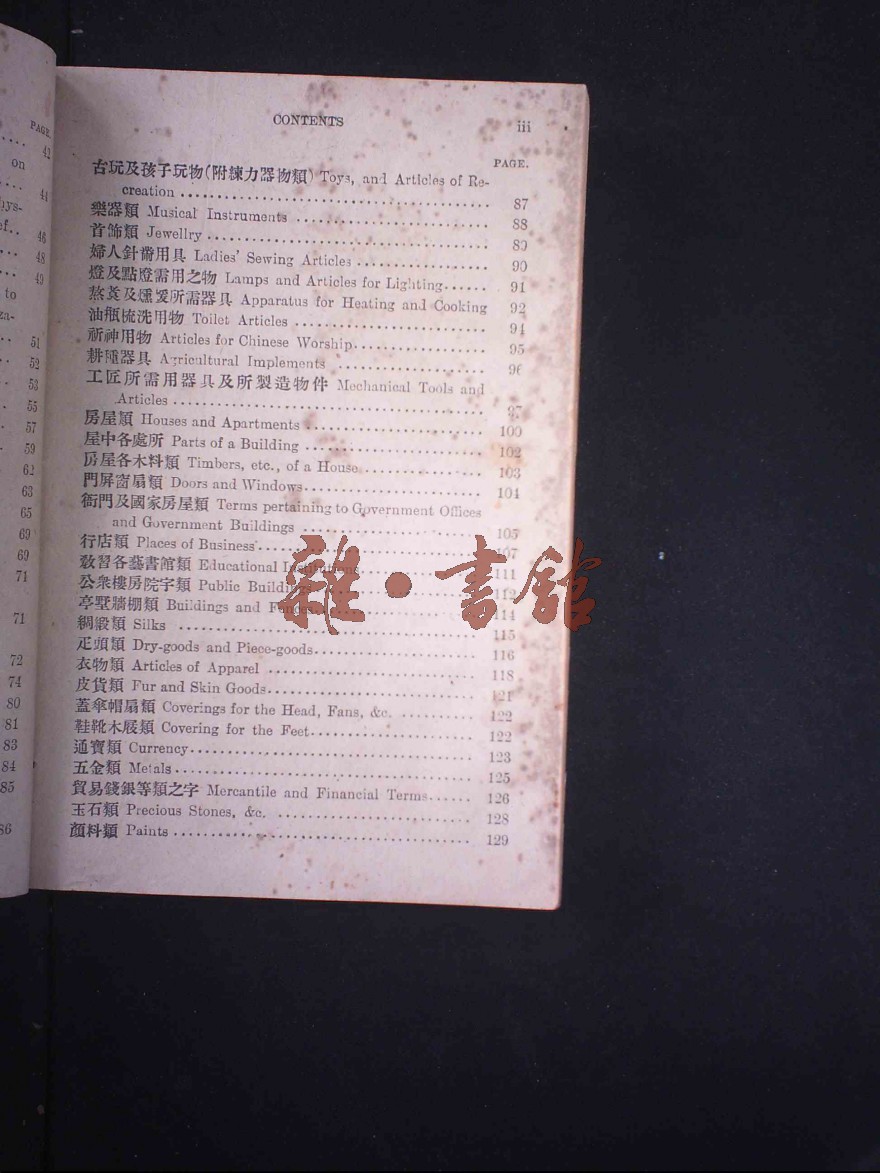 PAGE.
42
on
44
hys-
ef.. 46
48
49
to
za-
51
52
53
55
57
59
62
63
65
69
69
71
71
72
74
80
81
83
84
85
86
CONTENTS iii
PAGE.
古玩及孩子玩物(附練力器物類) Toys, and Articles of Re-
creation 87
樂器類 Musical Instruments 88
首飾類 Jewellry 89
婦人針黹用具 Ladies' Sewing Articles 90
燈及點燈需用之物 Lamps and Articles for Lighting 91
熬煑及燻煖所需器具 Apparatus for Heating and Cooking 92
油瓶梳洗用物 Toilet Articles 94
祈神用物 Articles for Chinese Worship 95
耕種器具 Agricultural Implements 96
工匠所需用器具及所製造物件 Mechanical Tools and
Articles 97
房屋類 Houses and Apartments 100
屋中各處所 Parts of a Building 102
房屋各木料類 Timbers, etc., of a House 103
門屏窗扇類 Doors and Windows 104
衙門及國家房屋類 Terms pertaining to Government Offices
and Government Buildings 105
行店類 Places of Business 107
敎習各藝書館類 Educational Institutions 111
公衆樓房院字類 Public Buildings 112
亭墅牆棚類 Buildings and Fences 114
綢緞類 Silks 115
疋頭類 Dry-goods and Piece-goods 116
衣物類 Articles of Apparel 118
皮貨類 Fur and Skin Goods 121
蓋傘帽扇類 Coverings for the Head, Fans, &c. 122
鞋靴木屐類 Covering for the Feet 122
通寶類 Currency 123
五金類 Metals 125
貿易錢銀等類之字 Mercantile and Financial Terms 126
玉石類 Precious Stones, &c. 128
顏料類 Paints 129
雜·書館